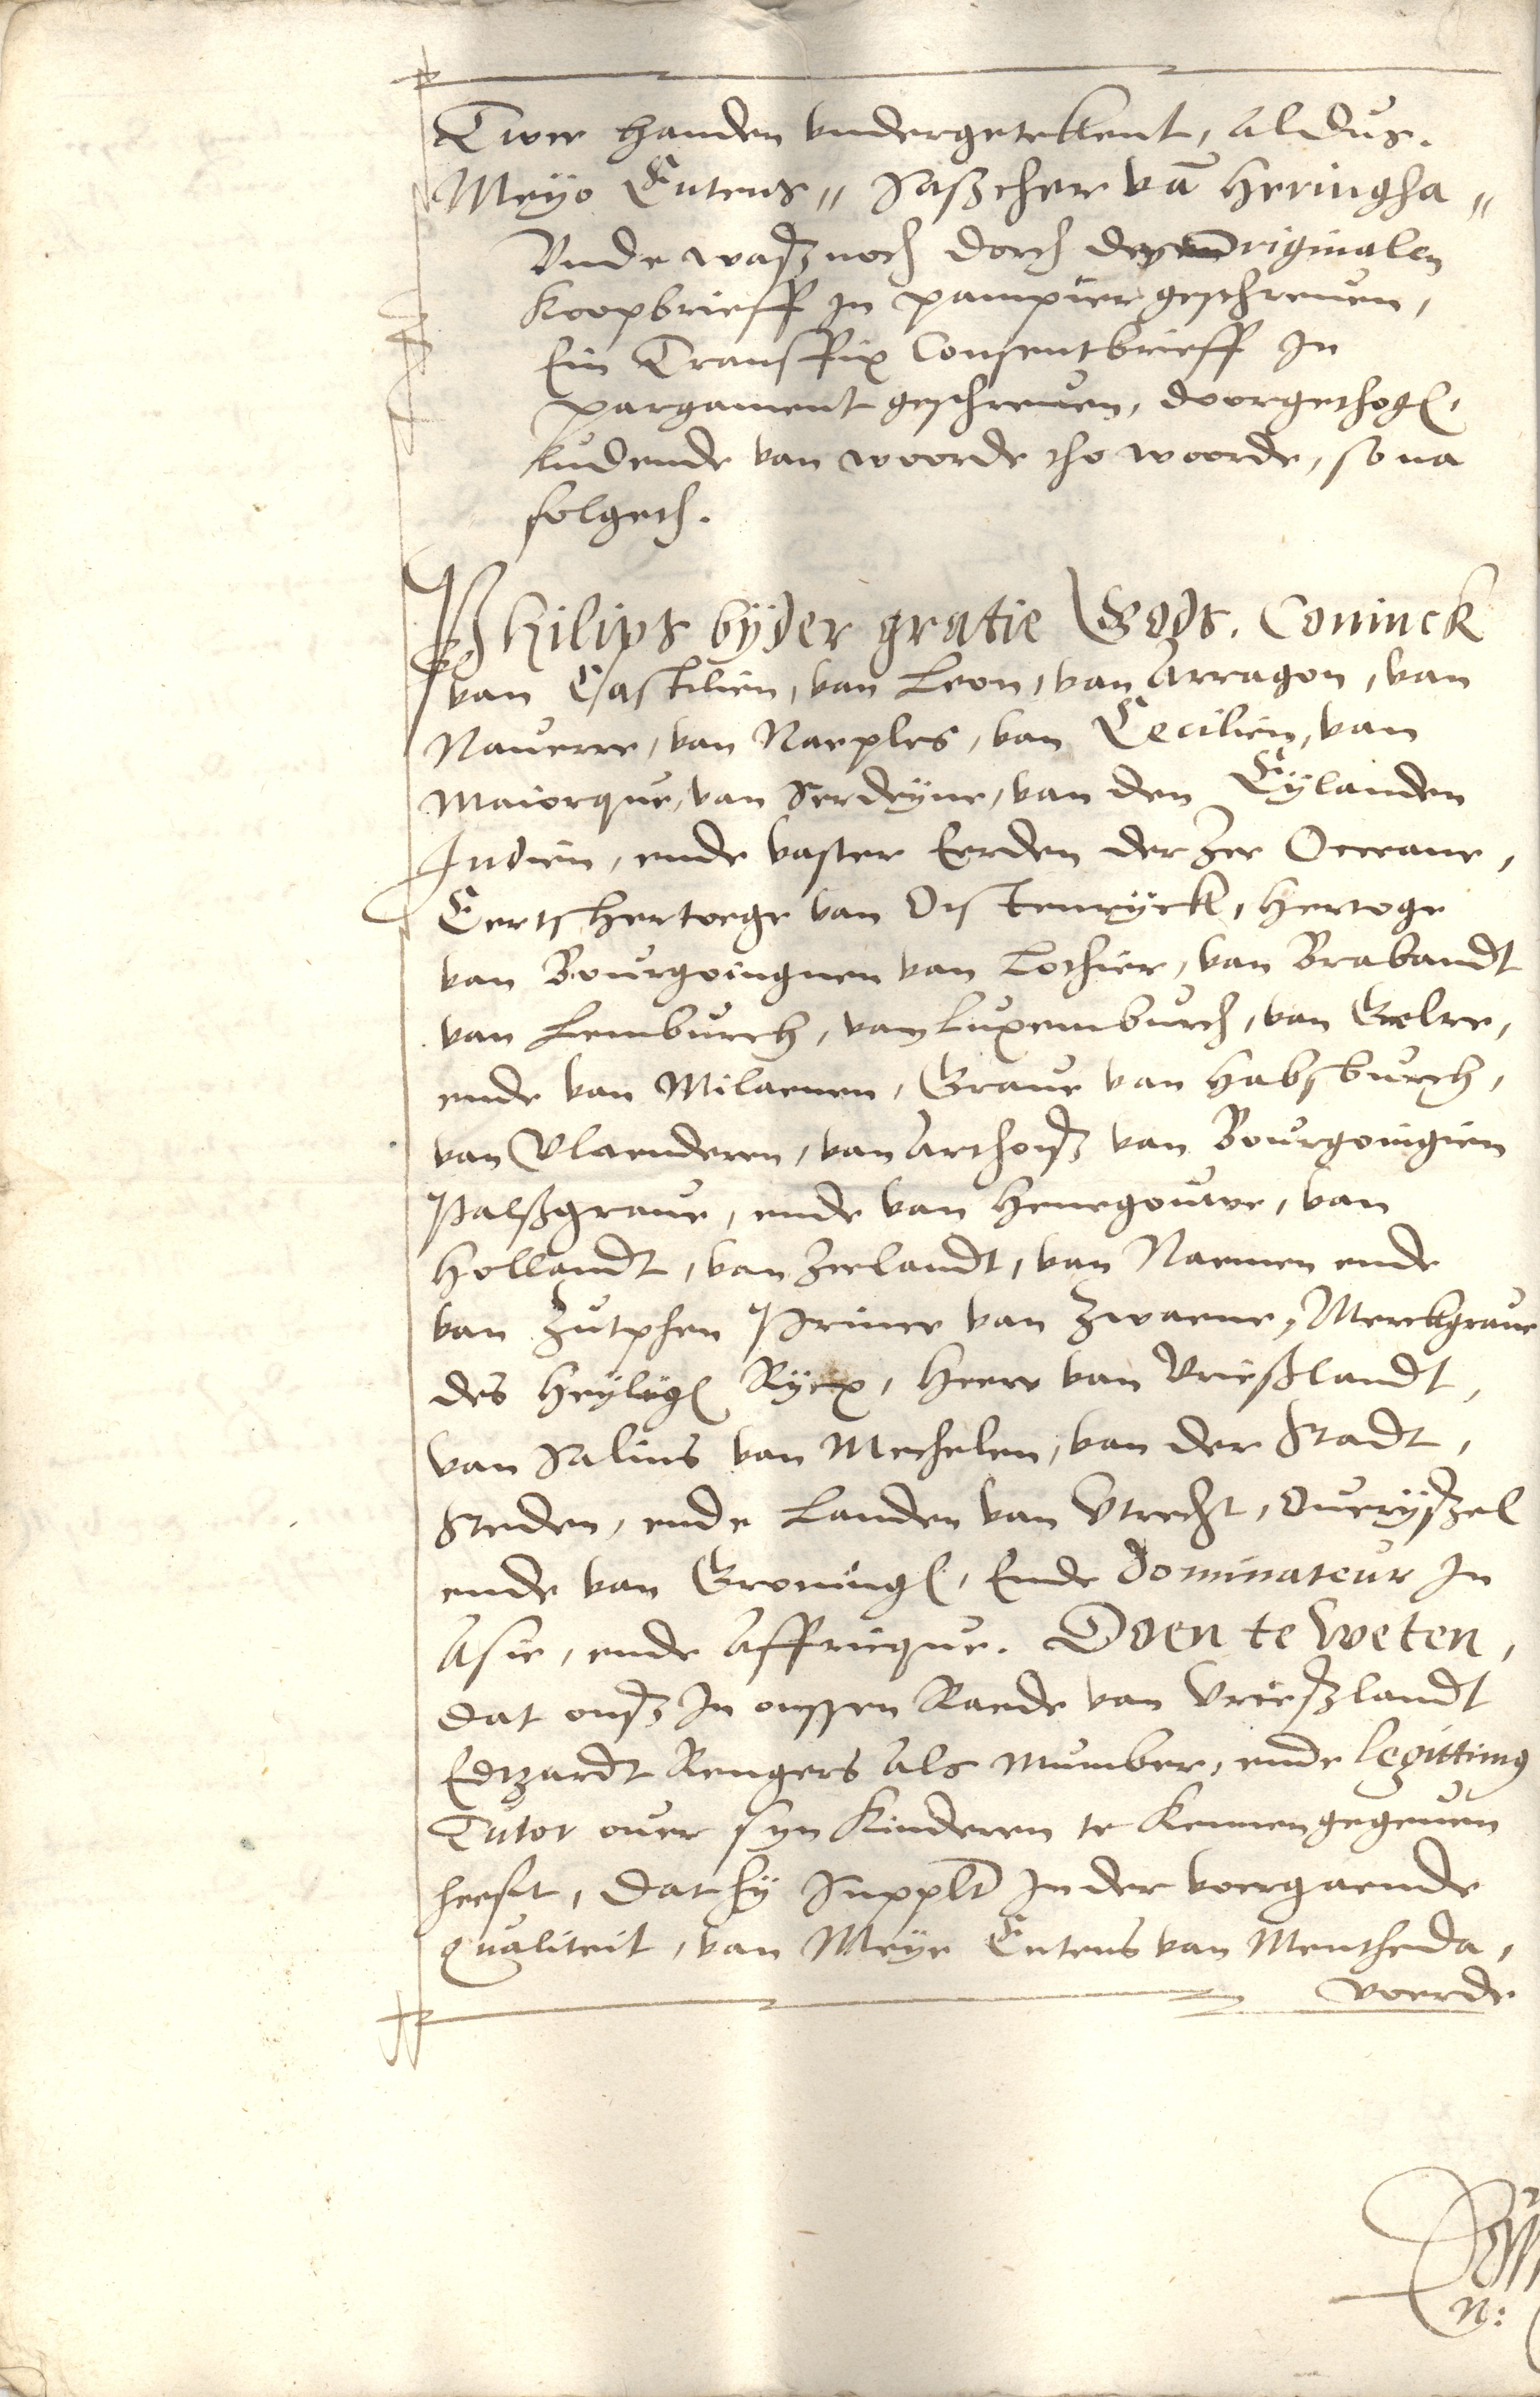 Twee handen undergetekent, Aldus.
Meÿo Entens // Saßcher vā Heringha //
Unde waß noch dorch dey originalen
Koopbrieff In pampier geschreven,
Ein Transfix Consentbrieff In
pargament geschreven, doorgethog.
ludende van woorde tho woorde, so na
folgeth.
Philips bÿder gratie Gods. Coninck
van Castilien, van Leon, van Arragon, van
Naverre, van Naeples, van Cecilien, van
Maiorque, van Serdeÿne, van den Eÿlanden
Indien, ende vaster Eerden der Zee Oceane,
Eertshertoege van Oistenrÿck, Hertoge
van Bourgoingnen van Lothier, van Brabandt
van Lemburch, van Luxemburch, van Gelre,
ende van Milaenen, Grave van Habsburch,
van Vlaenderen, van Arthoiß van Bourgoingien
Palßgrave, ende van Henegouwe, van
Hollandt, van Zeelandt, van Naemen ende
van Zutphen Prince van Zwaene, Merckgrave
des Heÿlig Rÿcx, Heere van Vrießlandt,
van Salins van Mechelen, van der Stadt,
Steden, ende Landen van Utrecht, Overÿßel
ende van Groning, Ende Dominateur In
Asie, ende Affricque. Doen te Weten,
dat onß In onssen Raede van Vrießlandt
Edtzardt Rengers als Mumber, ende legittimus
Tutor over syn Kinderen te Kennen gegeven
heeft, dat hÿ Supplt In der voergaende
qualiteit, van Meÿe Entens van Mentheda,
voerde
N: